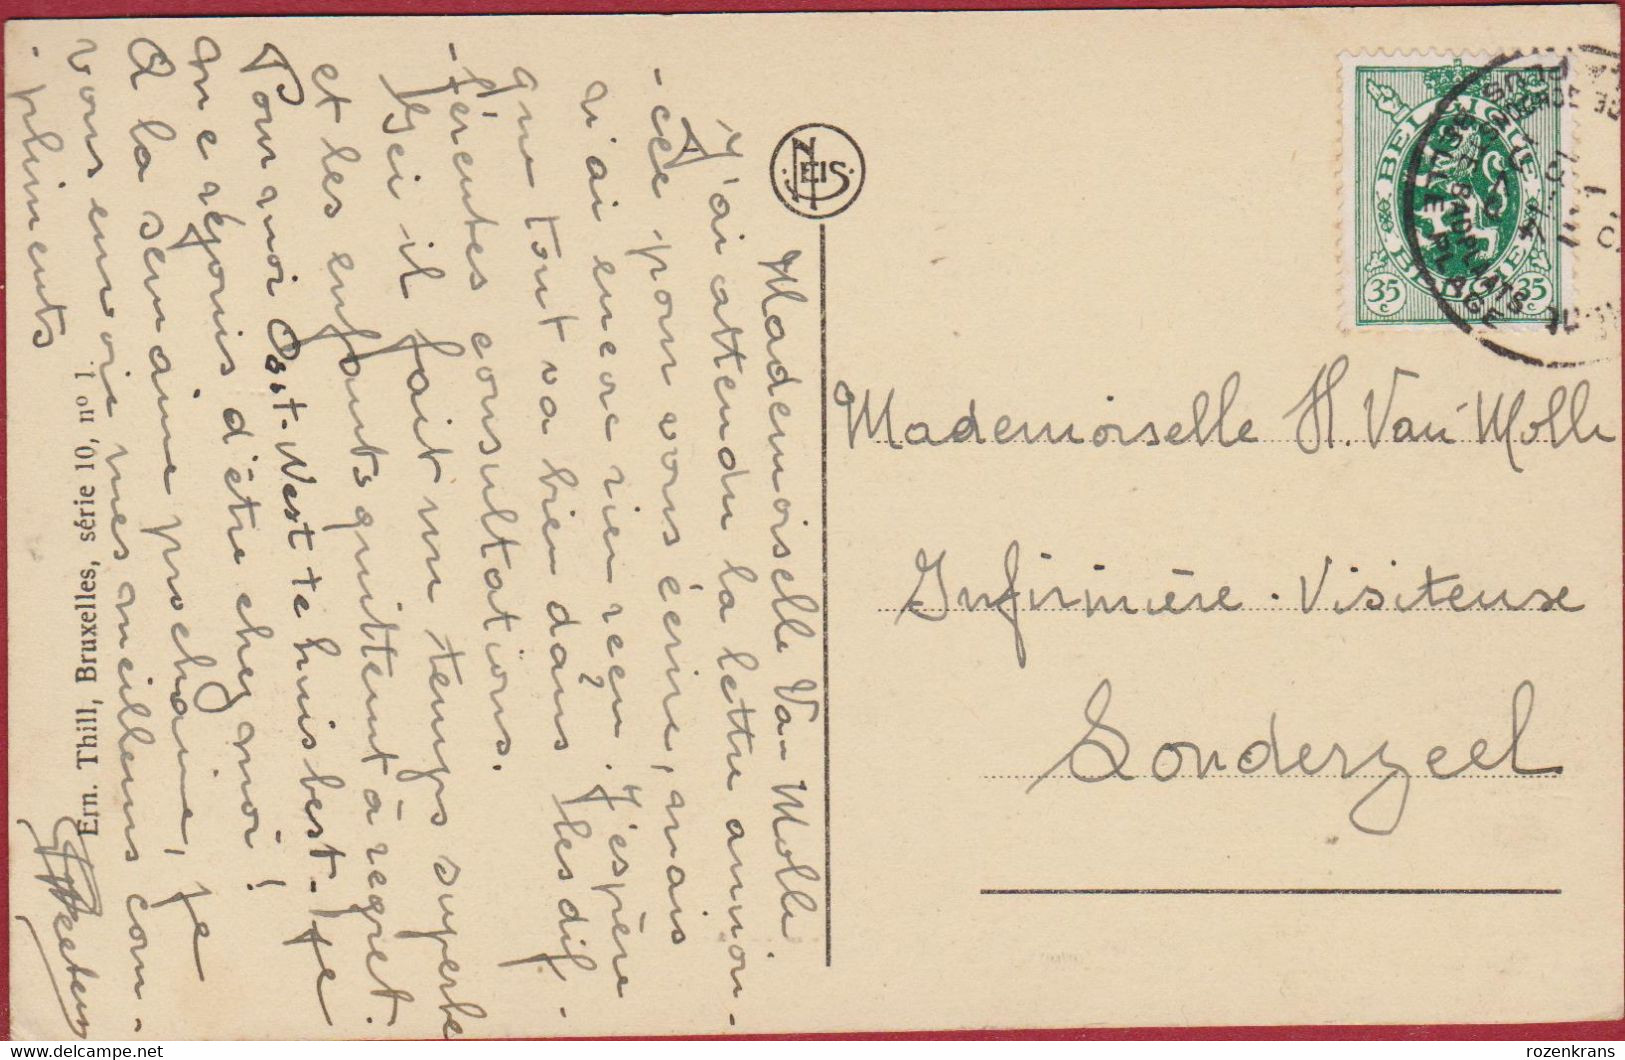 Mademoiselle Van Molle.
J'ai attendu la lettre annon-
-cée pour vous écrire, mais
n'ai encore rien reçu. J'espère
que tout va bien dans les dif-
-férentes consultations.
Ici il fait un temps superbe
et les enfants quittent à regret.
Pour moi Oost-West te huis best. Je
me réjouis d'être chez moi!
A la semaine prochaine, je
vous envoie mes meilleurs com-
-pliments
Ern. Thill, Bruxelles, série 10, nº 1.
NELS
BELGIQUE
BELGIE
35c 35c
Mademoiselle H. Van Molle
Infirmière-Visiteuse
Londerzeel
rozenkrans